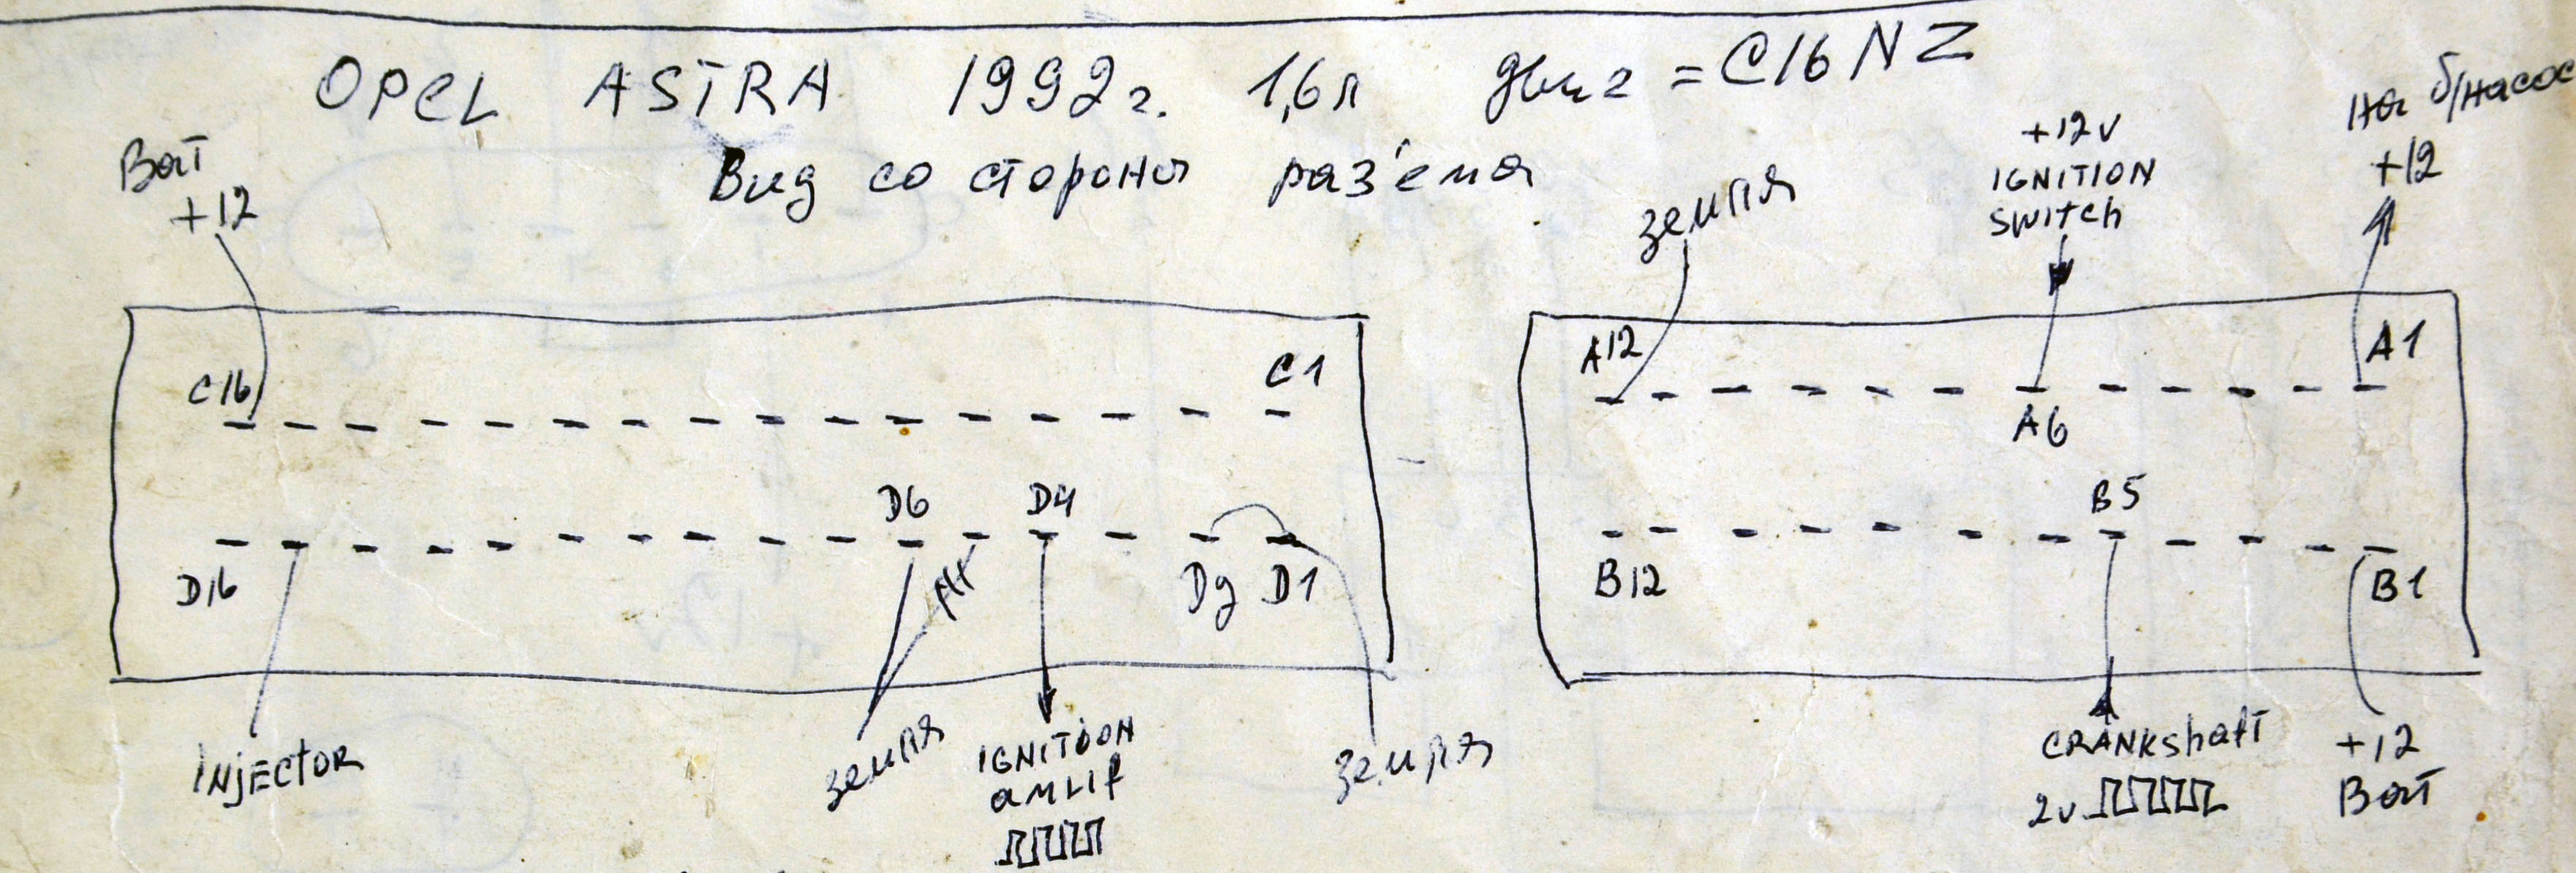 OPEL ASTRA 1992г. 1,6л двиг = C16NZ
Вид со стороны раз'ема
Bat
+12
земля
+12v
IGNITION
SWITCH
на б/насос
+12
C16
C1
D6
D4
D16
D2 D1
A12
A1
A6
B5
B12
B1
INJECTOR
земля
IGNITION
amlif
земля
CRANKshaft
2v
+12
Bat